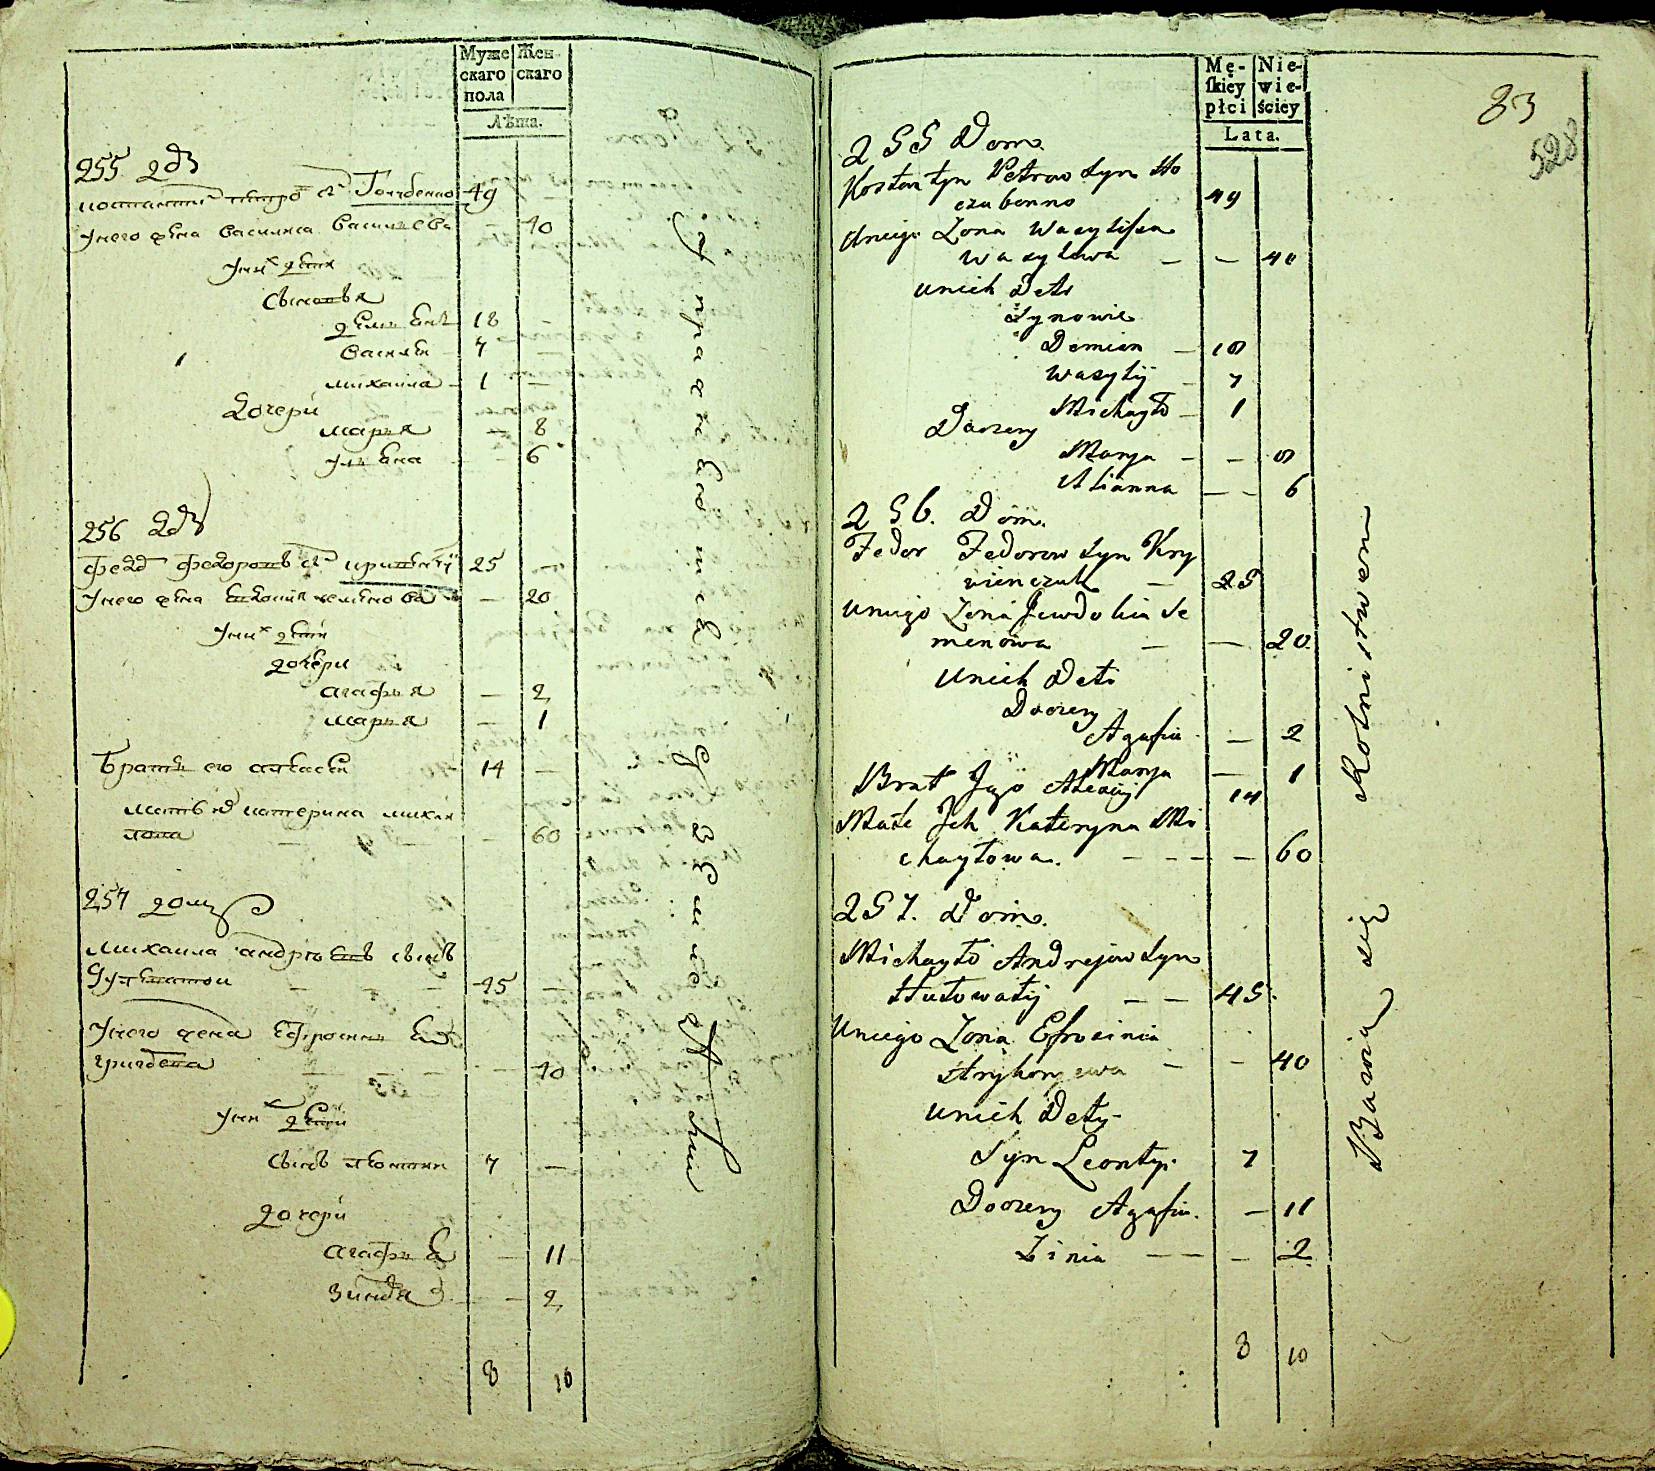 Муже
скаго
пола
Жен
скаго
Лѣта.
255 двъ
49
У него жена Василиса Василева - 40
У них дети
Сыновья
Демиян 18 -
Василий 7 -
Михаила - 1 -
Дочери
Марья - 8
Ульяна - 6
256 двъ
Федор Федоровъ сынъ 25 -
У него жена Евдокия Семенова - 20
У них дети
дочери
Агафья - 2
Марья - 1
Брат его Алексей 14 -
Мать их Катерина Михаи
лова - - 60
257 домъ
Михаила Андреевъ сынъ
45 -
У него жена Ефросиния
Григорева - - - 40
У них дети
Сынъ Леонтий 7 -
дочери
Агафья - 11
Зиновя - 2
8 10
Упражняются в земледелии
Mę-
skiey
płci
Nie-
wie-
ściey
Lata.
83
528
255 Dom.
Kostantyn Petrow Syn Ho
czubenno 49
Uniego Zona Wasylissa
Wasylewa - - 40
Unich Deti
Synowie
Demian - 18
Wasylij - 7
Michayło - 1
Doczery
Marya - - 8
Ulianna - - 6
256. Dom.
Fedor Fedorow Syn Kry
wienczuk - 25
Uniego Zona Jewdokia Se
menowa - - 20
Unich Deti
Doczery
Agafia - 2
Marya - 1
Brat Jego Alexiy 14
Mate Jch Kateryna Mi
chayłowa. - - - - 60
257. Dom.
Michayło Andrejow Syn
Hutowatij - - 45.
Uniego Zona Efrosinia
Hryhorjewa - - 40
Unich Dety
Syn Leontyi 7
Doczery Agafia. - 11
Zinia - - - 2
8 10
Bawia się Rolnistwem